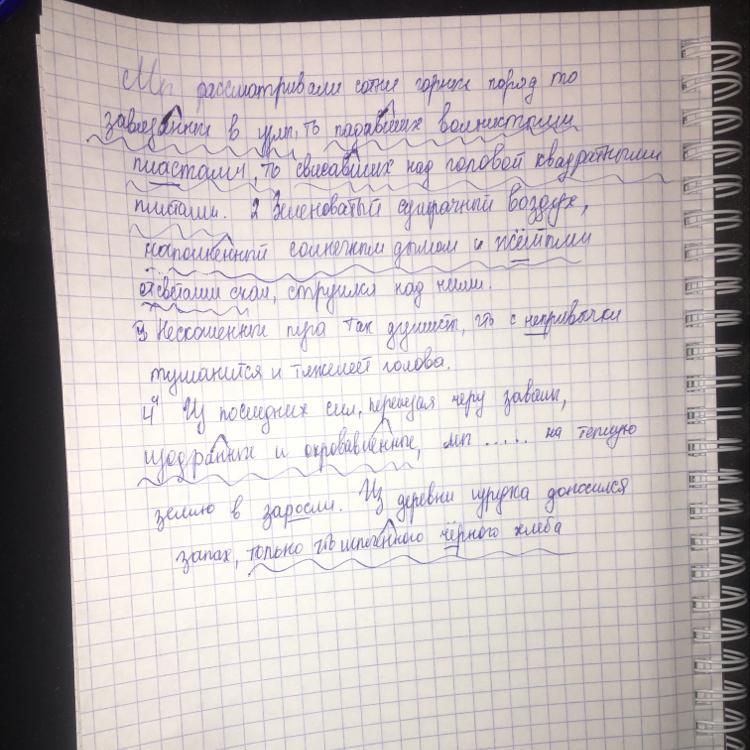 Мы рассматривали сотни горных пород то
в узлы, то падавших волнистыми
пластами, то свисавших над головой квадратными
плитами. 2 Зеленоватый сумрачный воздух,
наполненный солнечным дымом и жёлтыми
отсветами скал, струился над ними.
3 Нескошенные луга так душист, что с непривычки
туманится и тяжелеет голова.
4 Из последних сил, перелезая через завалы,
и окровавленные, мы ..... на теплую
землю в заросли. Из деревни доносился
запах, только что испечённого чёрного хлеба